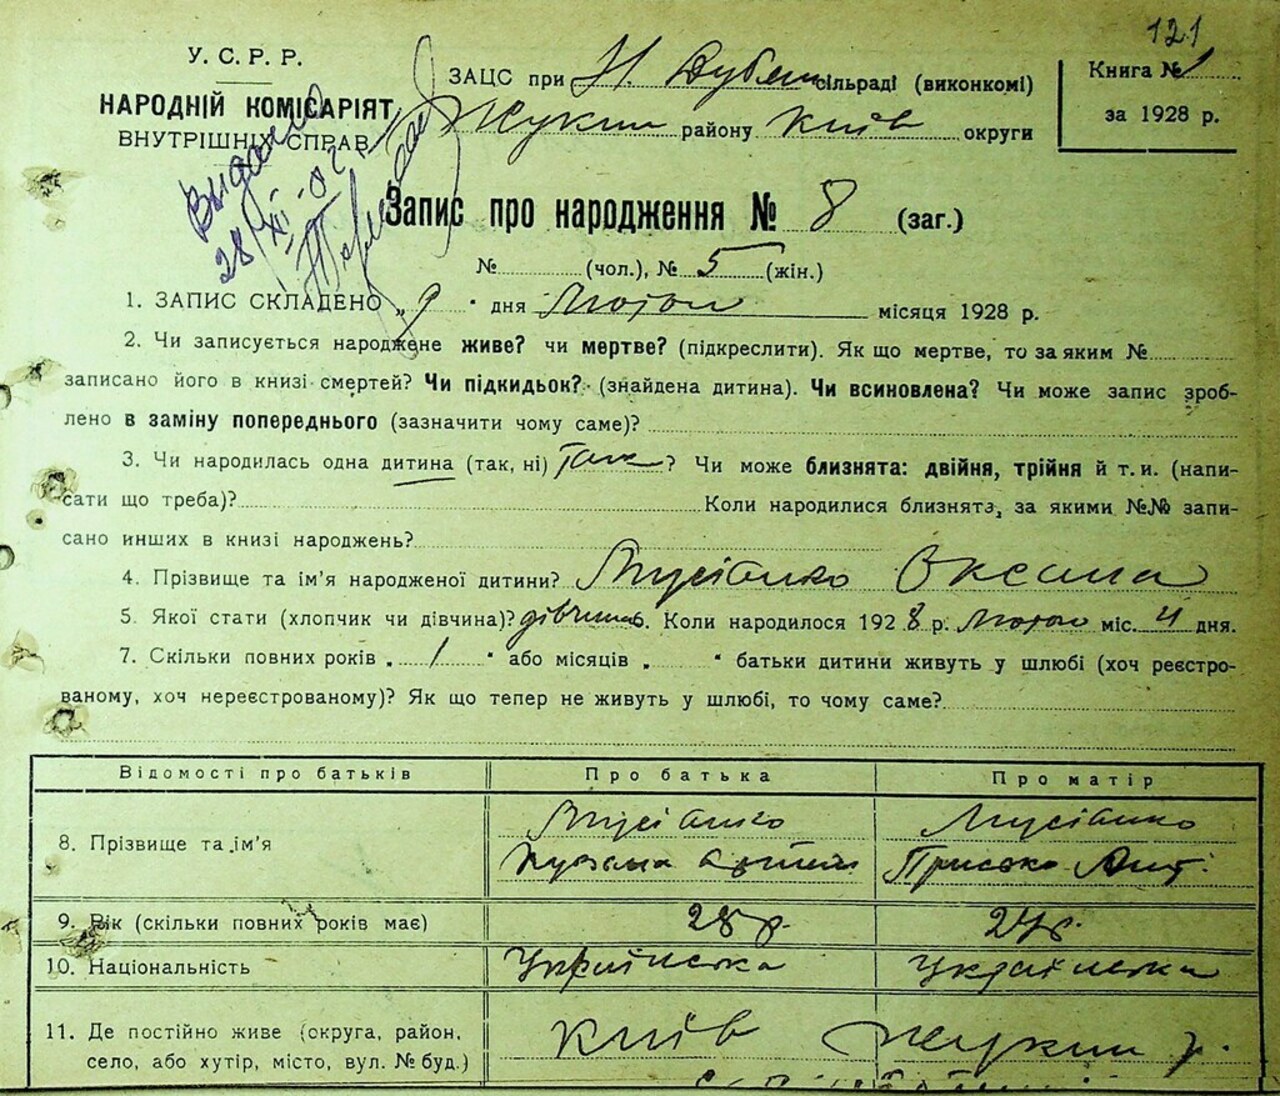 121
У. С. Р. Р.
НАРОДНІЙ КОМІСАРІЯТ
ВНУТРІШНІХ СПРАВ
ЗАЦС при Н. сільраді (виконкомі)
Жукин району Київ округи
Книга № 1
за 1928 р.
28/XI-
Запис про народження № 8 (заг.)
№ (чол.), № 5 (жін.)
1. ЗАПИС СКЛАДЕНО „ 9 " дня Лютого місяця 1928 р.
2. Чи записується народжене живе? чи мертве? (підкреслити). Як що мертве, то за яким №
записано його в книзі смертей? Чи підкидьок? (знайдена дитина). Чи всиновлена? Чи може запис зроб-
лено в заміну попереднього (зазначити чому саме)?
3. Чи народилась одна дитина (так, ні) Так ? Чи може близнята: двійня, трійня й т. и. (напи-
сати що треба)? Коли народилися близнята, за якими №№ запи-
сано инших в книзі народжень?
4. Прізвище та ім'я народженої дитини? Мусіенко Оксана
5. Якої стати (хлопчик чи дівчина)? дівчина 6. Коли народилося 1928 р. Лютого міс. 4 дня.
7. Скільки повних років „ 1 " або місяців „ " батьки дитини живуть у шлюбі (хоч реєстро-
ваному, хоч нереєстрованому)? Як що тепер не живуть у шлюбі, то чому саме?
Відомості про батьків Про батька Про матір
8. Прізвище та ім'я Мусіенко Мусіенко
Кузьма Приська Ант.
9. Вік (скільки повних років має) 28 р. 24 р.
10. Національність Українська Українська
11. Де постійно живе (округа, район, Київ Жукин р.
село, або хутір, місто, вул. № буд.)